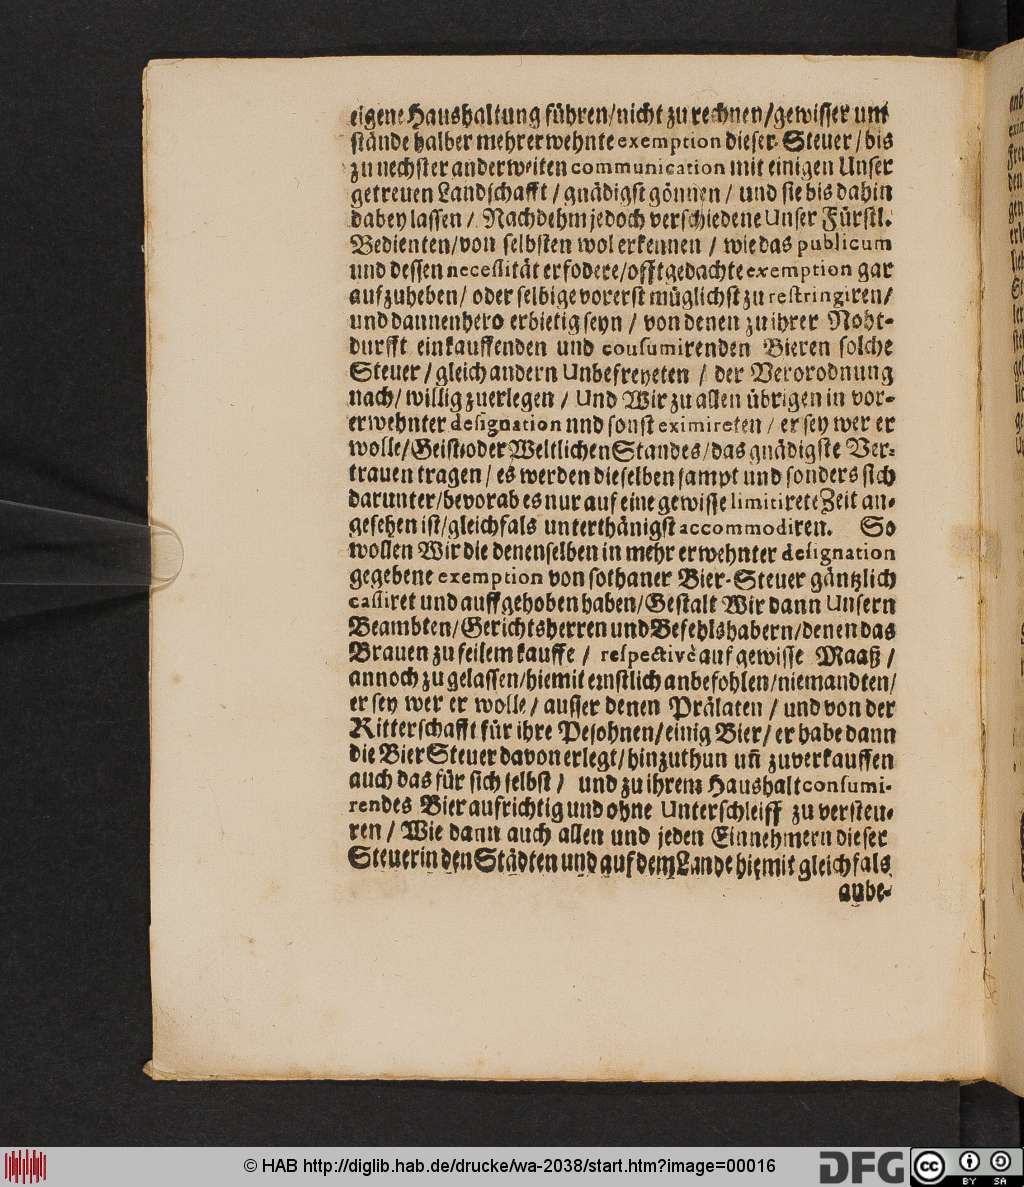 eigene Haushaltung führen/nicht zu rechnen/gewisser um
stände halber mehrerwehnte exemption dieser Steuer/bis
zu nechster anderweiten communication mit einigen Unser
getreuen Landschafft/gnädigst gönnen/und sie bis dahin
dabey lassen/Nachdehm jedoch verschiedene Unser Fürstl.
Bedienten/von selbsten wol erkennen/wie das publicum
und dessen necessität erfodere/offtgedachte exemption gar
aufzuheben/oder selbige vorerst müglichst zu restringiren/
und dannenhero erbietig seyn/von denen zu ihrer Noht-
durfft einkauffenden und cousumirenden Bieren solche
Steuer/gleich andern Unbefreyeten/der Verorodnung
nach/willig zuerlegen/Und Wir zu allen übrigen in vor-
erwehnter designation nnd sonst eximireten/er sey wer er
wolle/Geist-oder Weltlichen Standes/das gnädigste Ver-
trauen tragen/es werden dieselben sampt und sonders sich
darunter/bevorab es nur auf eine gewisse limitirete Zeit an-
gesehen ist/gleichfals unterthänigst accommodiren. So
wollen Wir die denenselben in mehr erwehnter designation
gegebene exemption von sothaner Bier-Steuer gäntzlich
cassiret und auffgehoben haben/Gestalt Wir dann Unsern
Beambten/Gerichtsherren und Befehlshabern/denen das
Brauen zu feilem kauffe/respectivè auf gewisse Maaß/
annoch zu gelassen/hiemit ernstlich anbefohlen/niemandten/
er sey wer er wolle/ausser denen Prälaten/und von der
Ritterschafft für ihre Pesohnen/einig Bier/er habe dann
die Bier Steuer davon erlegt/hinzuthun uñ zuverkauffen
auch das für sich selbst/und zu ihrem Haushalt consumi-
rendes Bier aufrichtig und ohne Unterschleiff zu versteu-
ren/Wie dann auch allen und jeden Einnehmern dieser
Steuer in den Städten und auf dem Lande hiemit gleichfals
anbe-
© HAB http://diglib.hab.de/drucke/wa-2038/start.htm?image=00016
DFG
cc BY SA